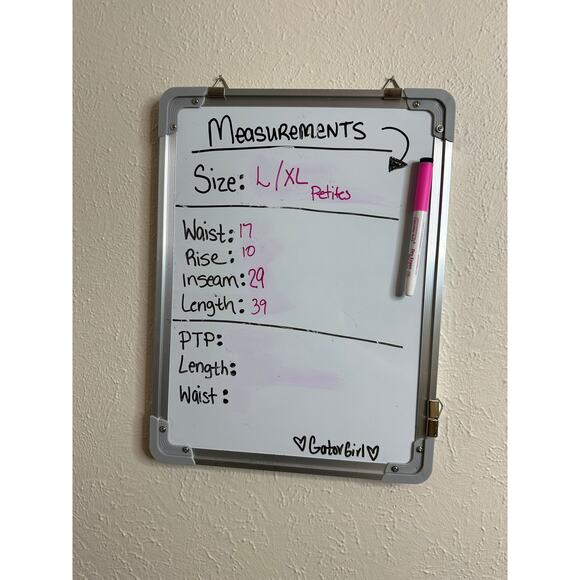 Measurements
Size: L/XL
Petites
Waist: 17
Rise: 10
Inseam: 29
Length: 39
PTP:
Length:
Waist:
♡GatorGirl♡